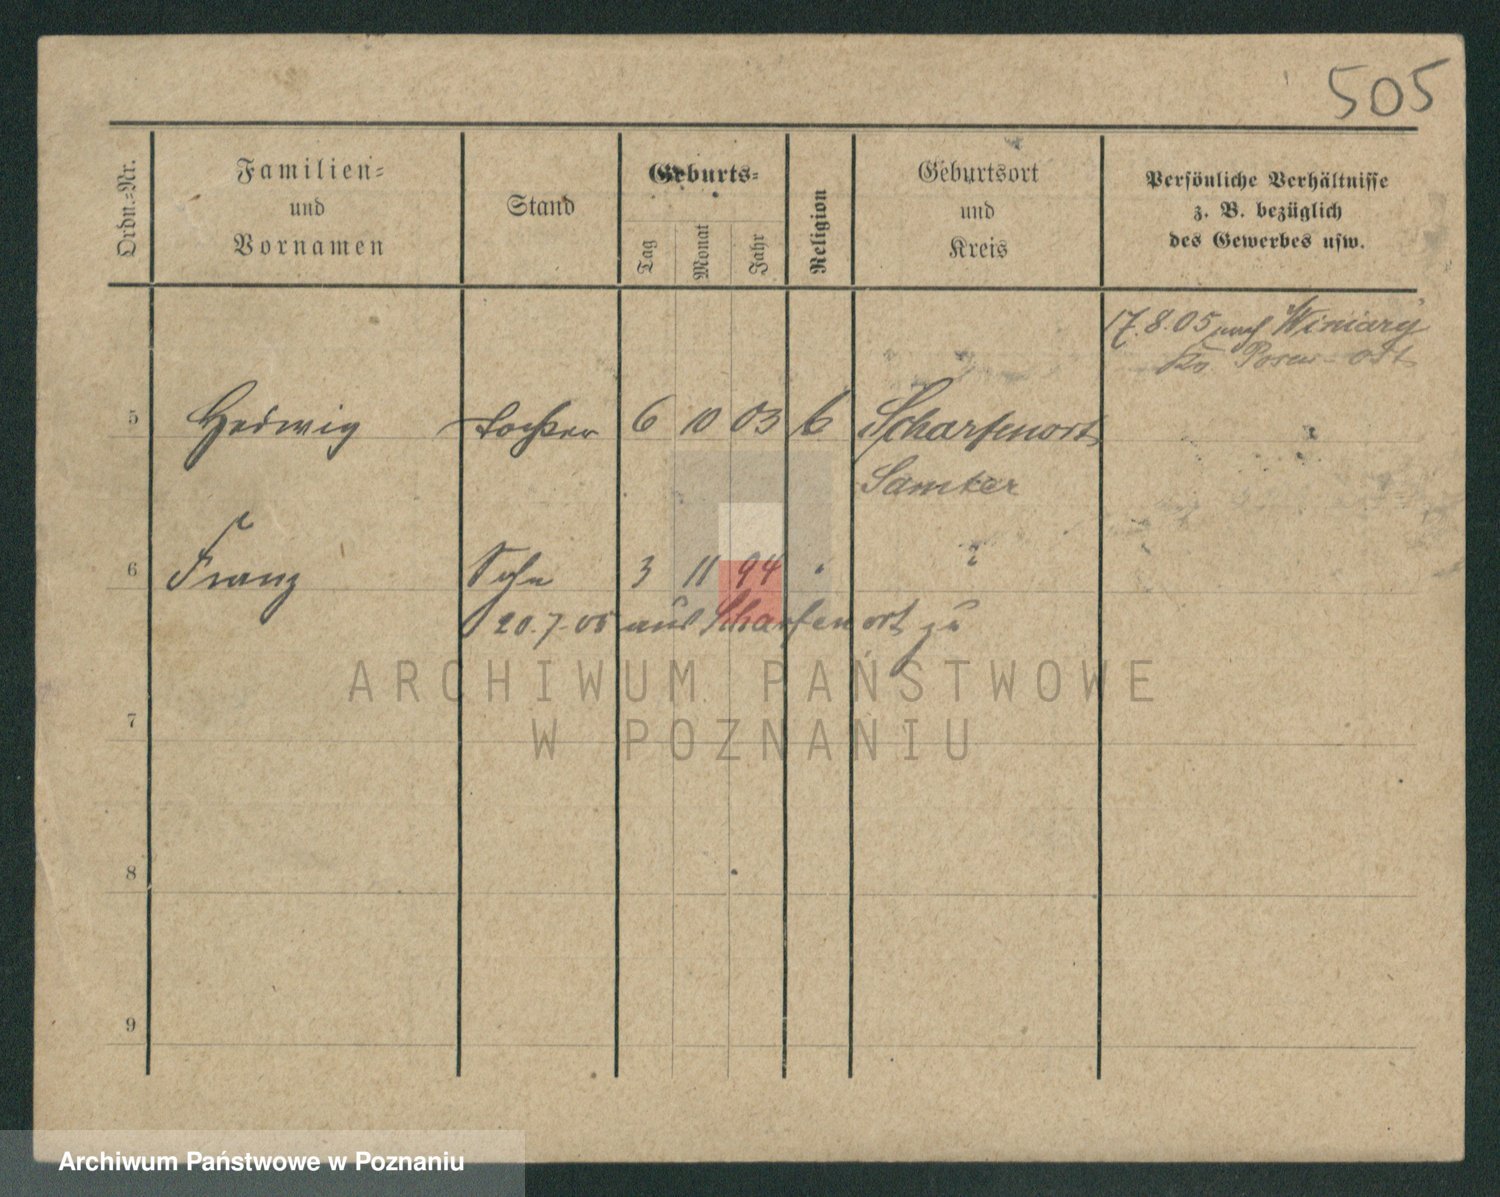 505
Ordn.-Nr.
Familien-
und
Vornamen
Stand
Geburts-
Tag
Monat
Jahr
Religion
Geburtsort
und
Kreis
Persönliche Verhältnisse
z. B. bezüglich
des Gewerbes usw.
17.8.05 nach Winiary
Kr. Posen-Ost
5 Hedwig Tochter 6 10 03 Scharfenort
Samter
6 Franz Sohn 3 11 94 " "
20.7.05 aus Scharfenort zu
7
8
9
ARCHIWUM PAŃSTWOWE
W POZNANIU
Archiwum Państwowe w Poznaniu